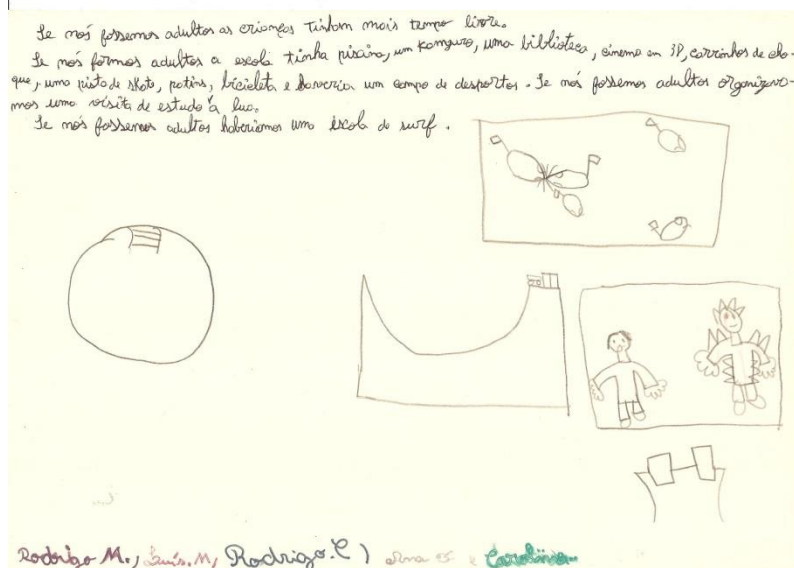 Se nós fossemos adultos as crianças tinham mais tempo livre.
Se nós formos adultos a escola tinha piscina, um kanguro, uma biblioteca, cinema em 3D, carrinhos de cho-
que, uma pista de skate, patins, bicicleta e haveria um campo de desportos. Se nós fossemos adultos organizava-
mos uma visita de estudo à lua.
Se nós fossemos adultos haberiamos uma escola de surf.
Rodrigo M., Luís. M, Rodrigo. C) Ana e Carolina